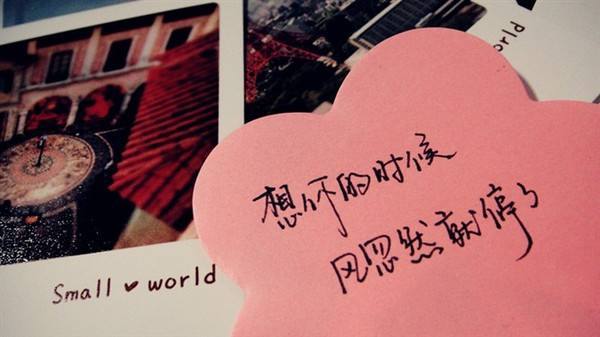 想你的时候
风忽然就停了
Small ♥ world
orld